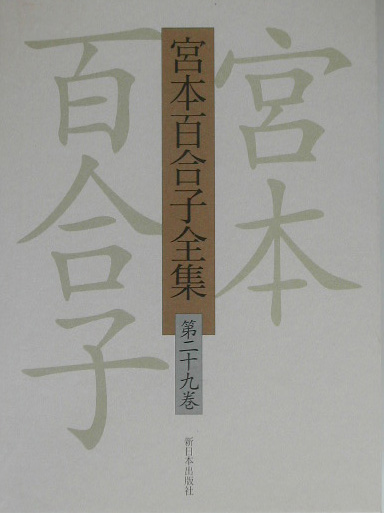 宮本
百合子
宮本百合子全集
第二十九巻
新日本出版社